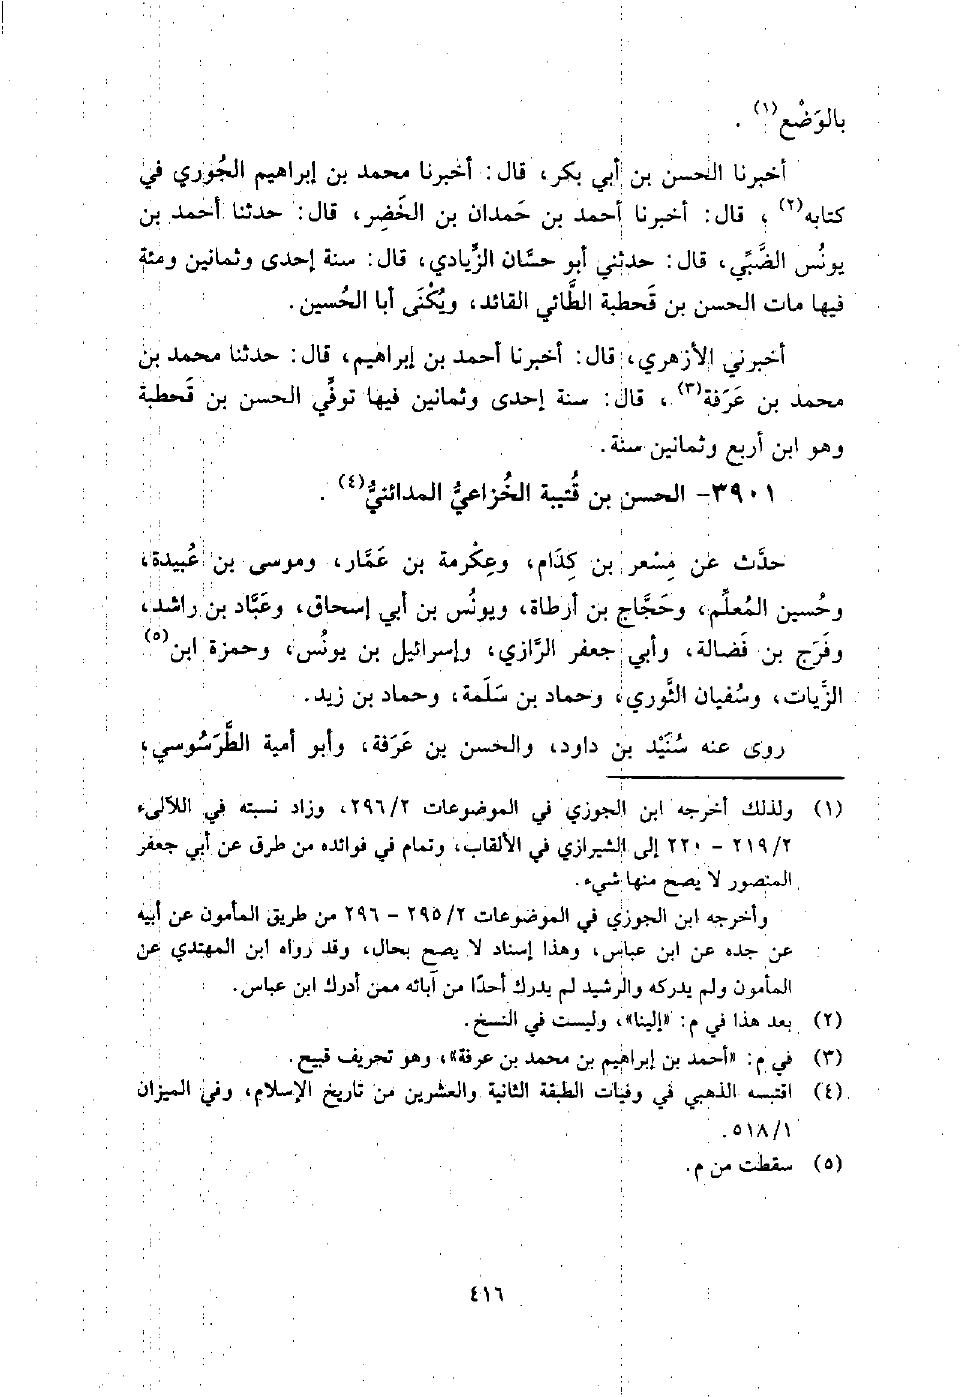 بالوَضْع(١) .
أخبرنا الحسن بن أبي بكر، قال: أخبرنا محمد بن إبراهيم الجُوري في
كتابه(٢) ، قال: أخبرنا أحمد بن حَمدان بن الخَضِر، قال: حدثنا أحمد بن
يونُس الضَّبِّي، قال: حدثني أبو حسَّان الزِّيادي، قال: سنة إحدى وثمانين ومئة
فيها مات الحسن بن قَحطبة الطَّائي القائد، ويُكْنَى أبا الحُسين.
أخبرني الأزهري، قال: أخبرنا أحمد بن إبراهيم، قال: حدثنا محمد بن
محمد بن عَرَفة(٣) ، قال: سنة إحدى وثمانين فيها توفِّي الحسن بن قَحطبة
وهو ابن أربع وثمانين سنة.
٣٩٠١- الحسن بن قُتيبة الخُزاعيُّ المدائنيُّ(٤) .
حدَّث عن مِسْعر بن كِدَام، وعِكْرمة بن عَمَّار، وموسى بن عُبيدة،
وحُسين المُعلِّم، وحَجَّاج بن أرطاة، ويونُس بن أبي إسحاق، وعَبَّاد بن راشد،
وفَرَج بن فَضالة، وأبي جعفر الرَّازي، وإسرائيل بن يونُس، وحمزة ابن(٥)
الزَّيات، وسُفيان الثَّوري، وحماد بن سَلَمة، وحماد بن زيد.
روى عنه سُنَيْد بن داود، والحسن بن عَرَفة، وأبو أمية الطَّرَسُوسي،
(١) ولذلك أخرجه ابن الجوزي في الموضوعات ٢٩٦/٢، وزاد نسبته في اللآلىء
٢١٩/٢ - ٢٢٠ إلى الشيرازي في الألقاب، وتمام في فوائده من طرق عن أبي جعفر
المنصور لا يصح منها شيء.
وأخرجه ابن الجوزي في الموضوعات ٢٩٥/٢ - ٢٩٦ من طريق المأمون عن أبيه
عن جده عن ابن عباس، وهذا إسناد لا يصح بحال، وقد رواه ابن المهتدي عن
المأمون ولم يدركه والرشيد لم يدرك أحدًا من آبائه ممن أدرك ابن عباس.
(٢) بعد هذا في م: «إلينا»، وليست في النسخ.
(٣) في م: «أحمد بن إبراهيم بن محمد بن عرفة»، وهو تحريف قبيح.
(٤) اقتبسه الذهبي في وفيات الطبقة الثانية والعشرين من تاريخ الإسلام، وفي الميزان
٥١٨/١.
(٥) سقطت من م.
٤١٦